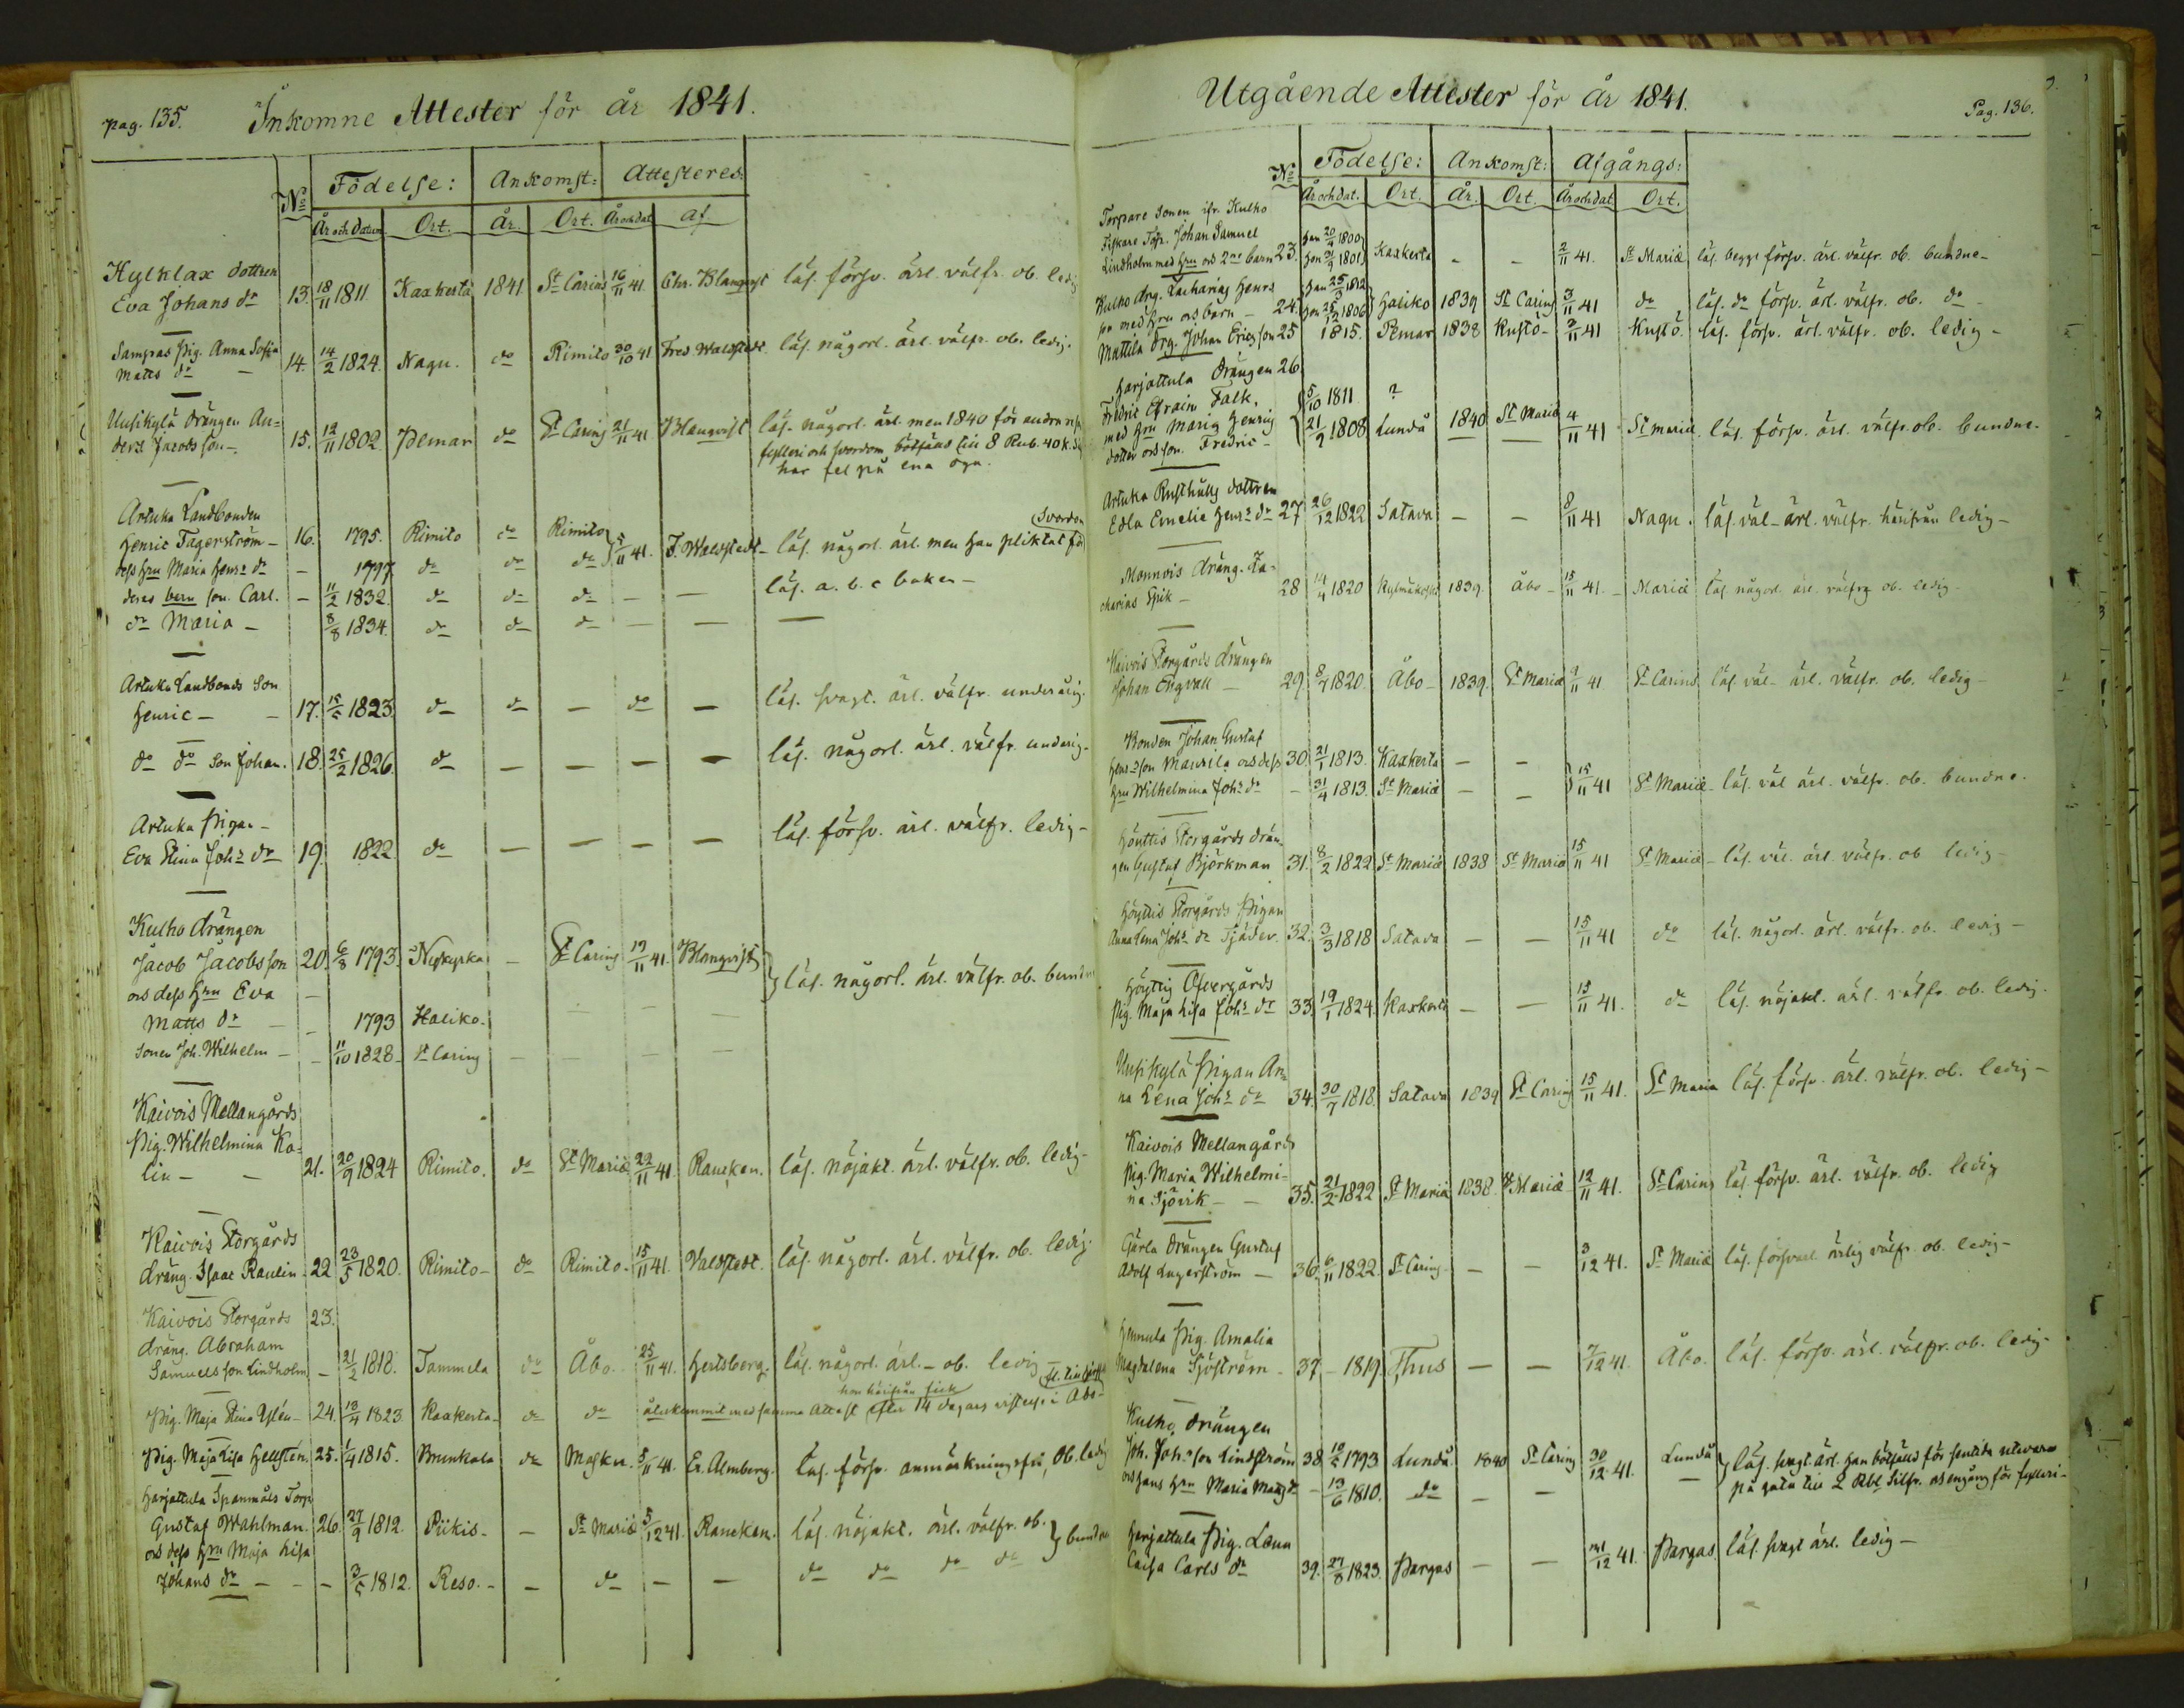 pag. 135. Inkomne Attester för år 1841.
No Födelse: Ankomst: Attesteres:
År och Datum Ort. År. Ort. År och dat af
Hylklax dottren
Eva Johans dr 13. 18/11 1811. Kaxkerta 1841 St Carins 16/11 41. Chr. Blanqvist läs. försv. ärl. välfr. ob. ledig
Sampas Pig. Anna Sofia
Matts dr 14. 14/2 1824. Nagu. do Rimito 30/10 41 Fred Waldstedt. läs. någorl. ärl. välfr. ob. ledig.
Uusikylä drängen An=
ders Jacobsson 15. 12/11 1802. Pdemar do St Carins 21/11 41 Blanqvist läs. någorl. ärl. men 1840 för andra
fylleri och svordom bötfälld till 8 Rub. 40 k.
har fel på ena öga.
Artuka Landbonden
Henric Fagerström 16. 1795. Rimito do Rimito 5/11 41. F. Waldstedt läs. någorl. ärl. men han pliktat för Svordom
dess hru Maria Hens dr 1797. do do do
deras barn son Carl. 11/2 1832. do do do läs. a. b. c boken
dr Maria 8/8 1834. do do do
Artuka Landbonds Son
Henric 17. 15/5 1823. do do do läs. svagt. ärl. välfr. underårig.
do do Son Johan. 18. 25/2 1826. do läs. någorl. ärl. välfr. underårig.
Artuka Pigan
Eva Stina Johs dr 19. 1822. do läs. försv. ärl. välfr. ledig
Kulho drängen
Jacob Jacobsson 20. 6/8 1793. Nykyrka St Carins 19/11 41. Blanqvist
och dess hru Eva läs. någorl. ärl. välfr. ob. bunden
Matts dr 1793 Haliko.
Sonen Joh. Wilhelm 11/10 1828. St Carins
Kaivois Mellangårds
Pig. Wilhelmina Ka=
lin 21. 20/9 1824 Rimito. do St Mariæ 22/11 41. Rancken. läs. nöjakt. ärl. välfr. ob. ledig
Kaivois Storgårds
dräng. Isaac Raulin 22. 23/5 1820. Rimito do Rimito. 15/11 41. Valdstedt. läs. någorl. ärl. välfr. ob. ledig.
Kaivois Storgårds 23.
dräng. Abraham
Samuelsson Lindholm 21/2 1818. Tammela do Åbo. 25/11 41. Hertsberg. läs. någorl. ärl. ob. ledig
hon härifrån fick
Pig. Maja Stina 24. 13/4 1823. Kaxkerta do do återkommit med samma Attest efter 14 dagars vistelse i Åbo
Pig. Maja Lisa Hellsten. 25. 1/4 1815. Brunkala do Masku. 5/11 41. Er. Almberg. läs. försv. anmärkningsfri, ob. ledig
Harjattula Spanmåls Torp.
Gustaf Wahlman. 26. 27/9 1812. Piikis. St Mariæ 5/12 41. Rancken. läs. nöjakt. ärl. välfr. ob. bunden
och dess hru Maja Lisa
Johans dr 3/5 1812. Reso. do do do do do
Utgående Attester för år 1841. Pag. 136.
No Födelse: Ankomst: Afgångs:
År och dat. Ort. År. Ort. År och dat Ort.
Torpare sonen ifr. Kulho
Fiskare Torp. Johan Samuel han 20/4 1800
Lindholm med hru och 2ne barn 23. hon 21/9 1801 Kaxkerta 2/11 41. St Mariæ läs. begge försv. ärl. välfr. ob. bundne
Kulho drg. Zacharias Henrs han 25/3 1812
son med hru och barn 24. hon 25/12 1806 Haliko 1839 St Carins 3/11 41 do läs. do försv. ärl. välfr. ob. do
Mattila drg. Johan Ericsson 25 1815. Pemar 1838 Kustö 3/11 41 Kustö. läs. försv. ärl. välfr. ob. ledig
Harjattula drängen 26
Fredric Efraim Falk, 5/10 1811 ?
med hru Maria Henrics 21/9 1808 Lundå 1840 St Mariæ 4/11 41 St mariæ läs. försv. ärl. välfr. ob. bundne.
dotter och son. Fredric
Artuka Rusthålls dottren
Edla Emelie Henrs dr 27 26/12 1822 Satava 8/11 41 Nagu. läs. väl ärl. välfr. härifrån ledig
Monnois dräng. Za=
charias Spik 28 14/4 1820 Kylmäkoski 1839. Åbo 15/11 41. Mariæ läs. någorl. ärl. välfr. ob. ledig
Kaivois Storgårds drängen
Johan Engvall 29. 8/7 1820. Åbo 1839. St Mariæ 9/11 41 St Carins läs. väl ärl. välfr. ob. ledig
Bonden Johan Gustaf
Henrsson Maurila och dess 30. 21/1 1813. Kaxkerta 15/11 41 St Mariæ läs. väl ärl. välfr. ob. bundne.
hru Wilhelmina Johs dr 31/4 1813. St Mariæ
Höyttis Storgårds drän=
gen Gustaf Björkman 31. 8/2 1822. St Mariæ 1838 St Mariæ 15/11 41 St Mariæ läs. väl. ärl. välfr. ob ledig
Höyttis Storgårds Pigan
Anna Lena Johs dr Tjäder 32. 3/3 1818 Satava 15/11 41 do läs. någorl. ärl. välfr. ob. ledig
Höyttis Ofvergårds
Pig. Maja Lisa Johs dr 33. 19/1 1824. Kaxkerta 15/11 41. do läs. nöjakt. ärl. välfr. ob. ledig.
Uusikylä Pigan An=
na Lena Johs dr 34. 30/7 1818. Satava 1839 St Carins 15/11 41. St Maria läs. försv. ärl. välfr. ob. ledig
Kaivois Mellangårds
Pig. Maria Wilhelmi=
na Sjövik 35. 21/2 1822 St Mariæ 1838. St Mariæ 12/11 41. St Carins läs försv. ärl. välfr. ob. ledig
Gärla drängen Gustaf
Adolf Lagerström 36. 6/11 1822. St Carins 3/12 41. St Mariæ läs. försvarl. ärlig välfr. ob. ledig
Hennula Pig. Amalia
Magdalena Sjöström 37. 1819. Thus 7/12 41. Åbo. läs. försv. ärl. välfr. ob. ledig
Kulho drängen
Joh. Johsson Lindström 38. 10/5 1793 Lundå 1840 St Carins 30/12 41. Lundå läs. svagt. ärl. han bötfälld för
och hans hru Maria 13/6 1810. do på gata till 2 Rbl Silfr. och engång för fylleri
Harjattula Pig. Lena
Caisa Carls dr 39. 27/8 1823. Pargas 31/12 41. Pargas läs. svagt ärl. ledig